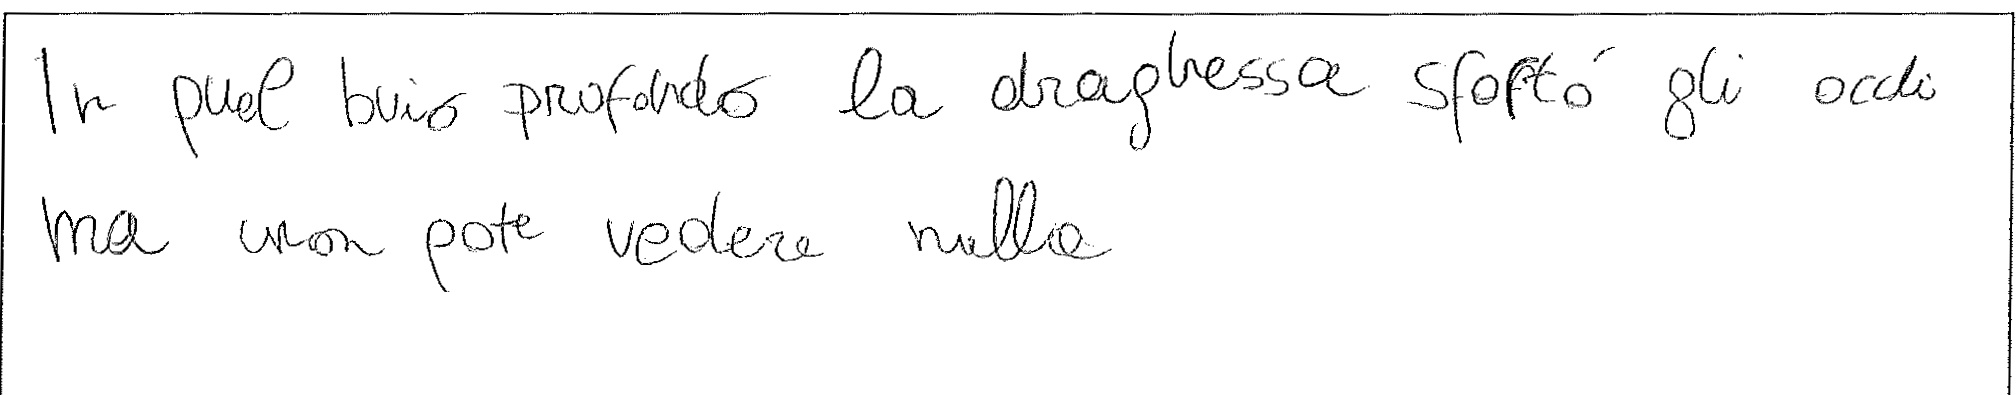 In quel buio profondo la draghessa sfoftó gli occhi
ma non pote vedere nulla